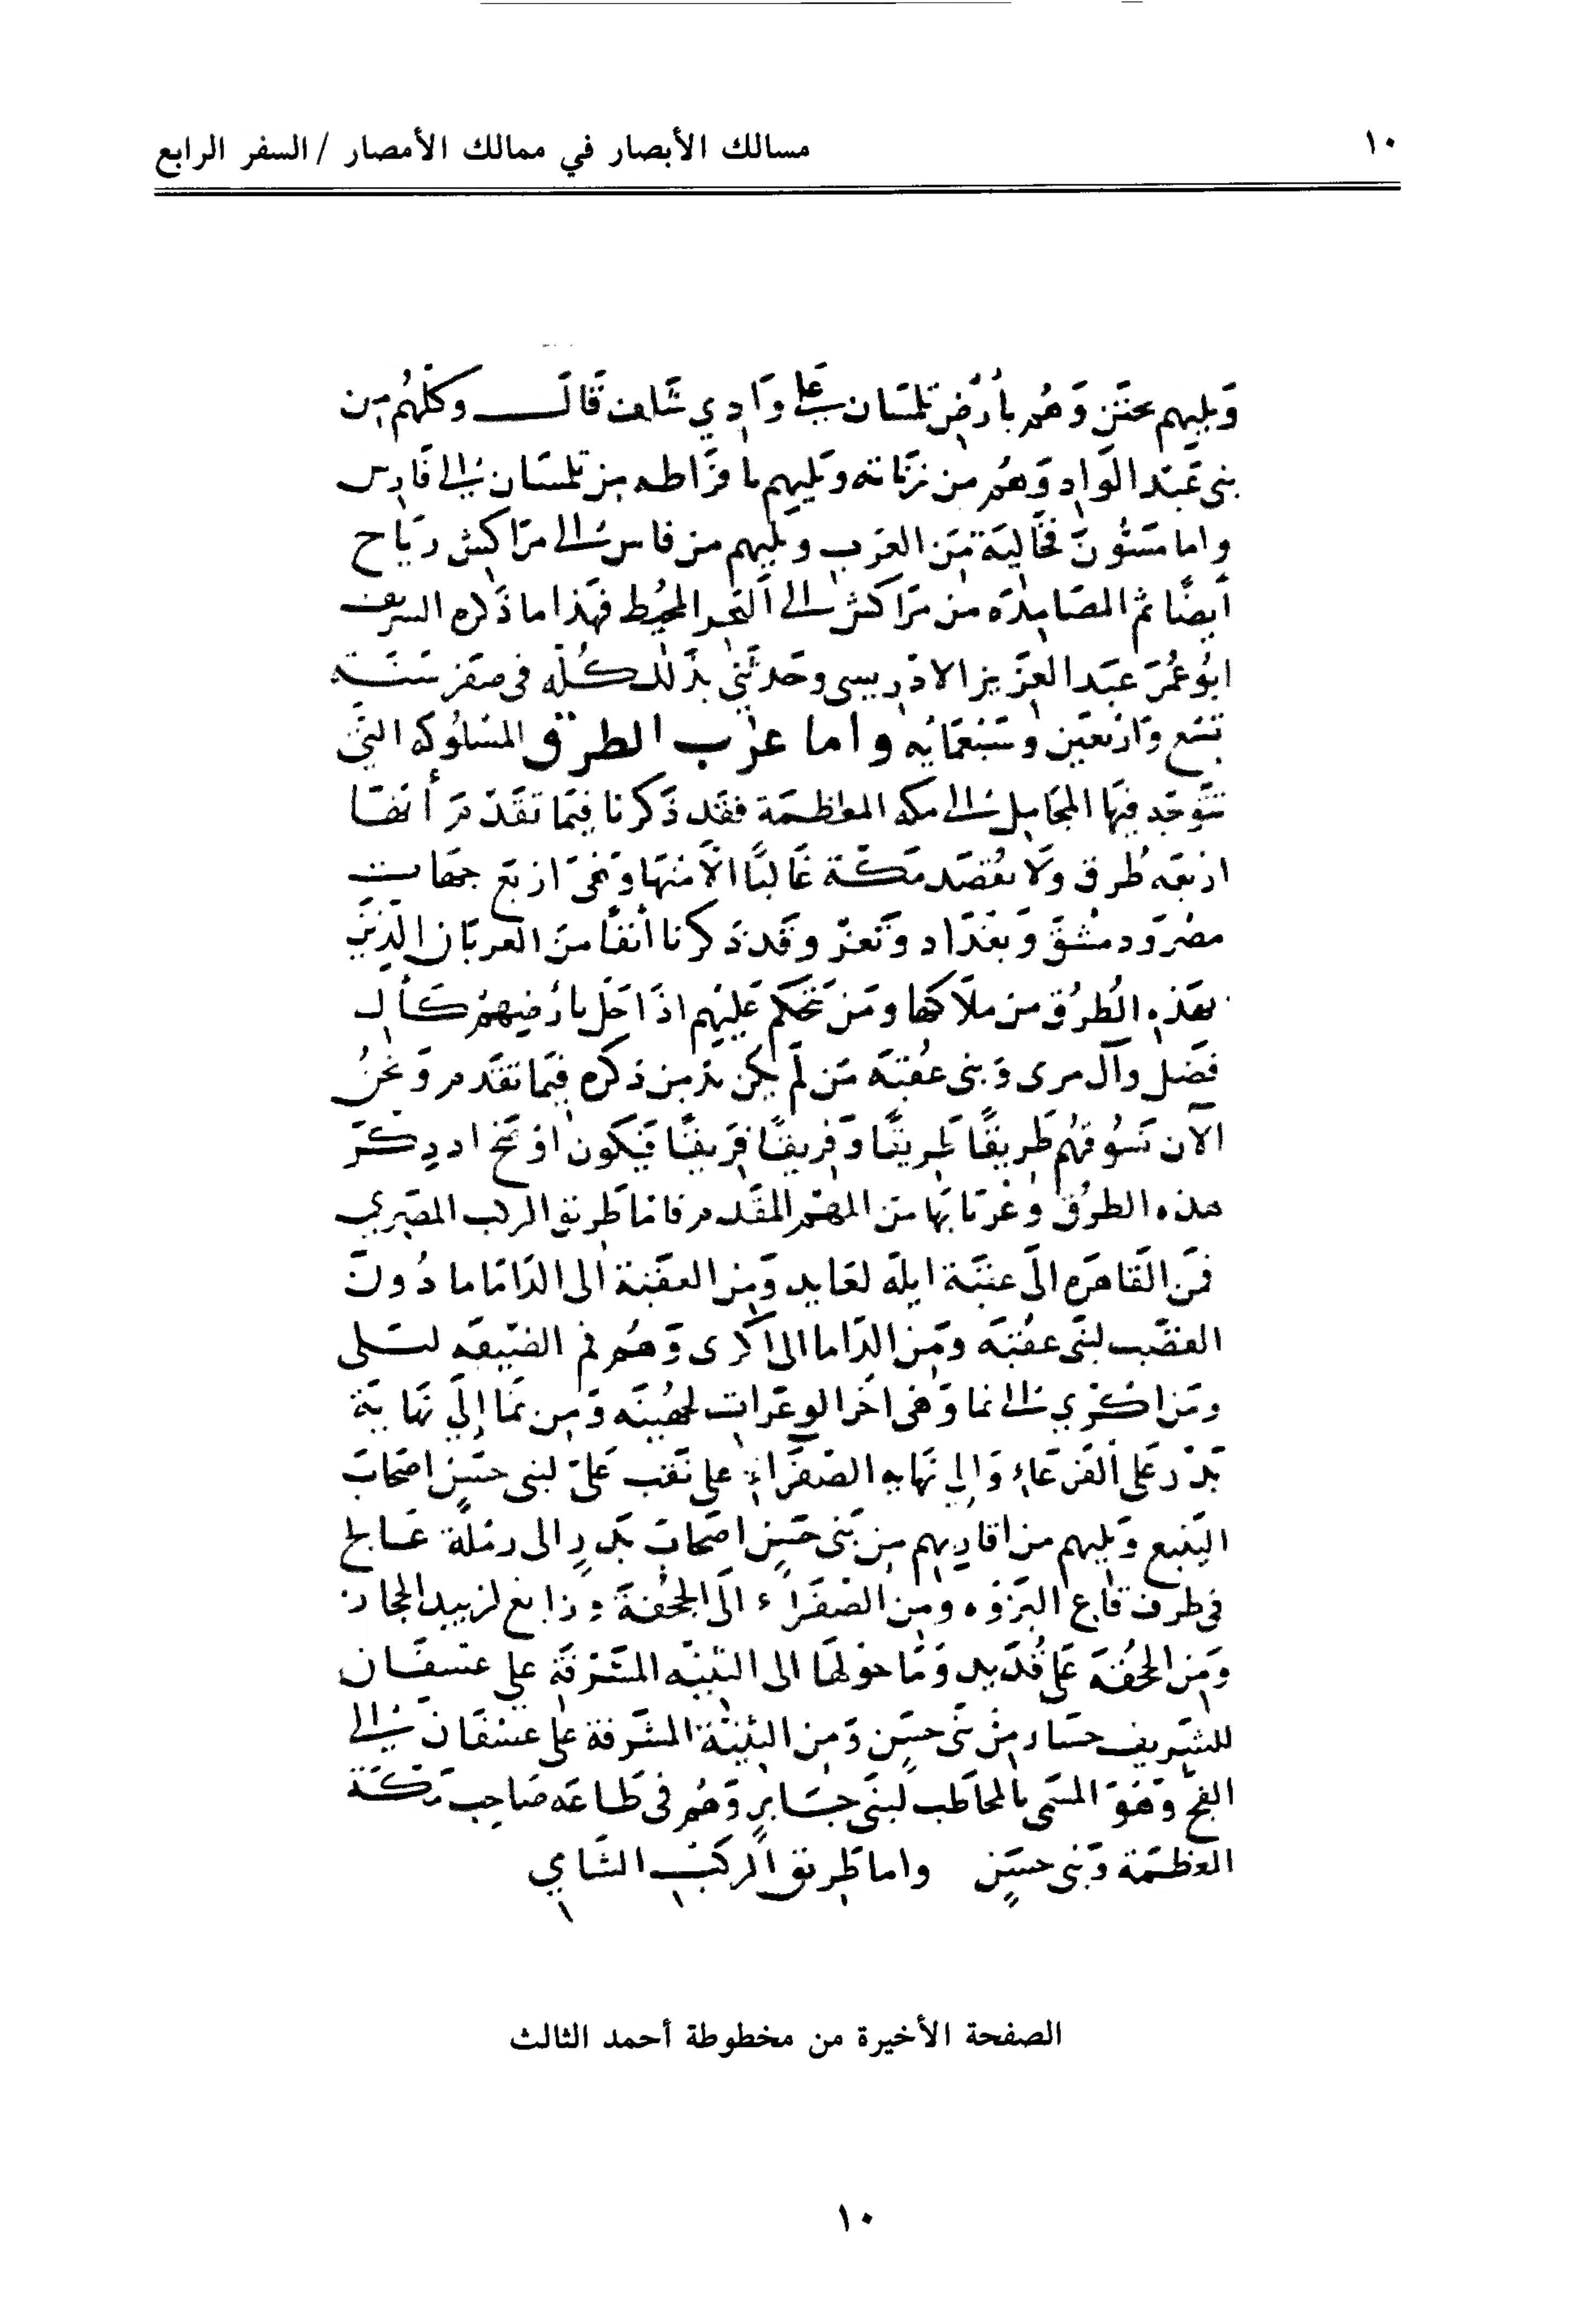 ١٠
مسالك الأبصار في ممالك الأمصار / السفر الرابع
ويليهم وهم بأرض تلمسان على وادي شلف قال وكلهم من
بني عبد الواد وهم من زناته ويليهم من تلمسان الى فاس
واما فخالية من العرب ويليهم من فاس الى مراكش رياح
أيضا ثم المصامدة من مراكش الى البحر المحيط فهذا ما ذكره الشريف
ابو عمر عبد العزيز الادريسى وحدثني بذلك كله فى صفر سنة
تسع واربعين وسبعمايه واما عرب الطرق المسلوكه التي
تتوجه فيها المحامل الى مكه المعظمة فقد ذكرنا فيما تقدم أنفا
اربعه طرق ولا يقصد مكة غالبا الا منها وهى اربع جهات
مصر ودمشق وبغداد وتعز وقد ذكرنا أنفا من العربان الذين
بهذه الطرق من ملاكها ومن تحكم عليهم اذا حل بارضيهم كأل
فضل وآل مرى وبنى عقبه من لم يكن بد من ذكره فيما تقدم ونحن
الآن نسوقهم طريقا طريقا وفريقا فريقا فيكون
هذه الطرق وعربانها من المهم المقدم فاما طريق الركب المصري
فمن القاهره الى عقبة ايله لعايد ومن العقبة الى الداما ما دون
لبنى عقبه ومن الداما الى اكرى وهم فم الضيقه لبلى
ومن اكري الى نما وهى اخر الوعرات لجهينه ومن نما إلي نهاية
بدر على الفرعاء والي نهايه الصفراء على نقب على لبنى حسين اصحاب
الينبع ويليهم من اقاربهم من بنى حسن اصحاب بدر الى رملة عالج
فى طرف قاع البزوه ومن الصفراء الى الجحفة ورابغ لزبيد الحجاز
ومن الجحفه على قديد وما حولها الى الثنيه المشرفة علي عسفان
للشريف من بنى حسن ومن الثنية المشرفة على عسفان الى
الفج وهو المسمى بالمحاطب لبنى جابر وهم فى طاعه صاحب مكة
المعظمة وبنى حسن واما طريق الركب الشامي
الصفحة الأخيرة من مخطوطة أحمد الثالث
١٠